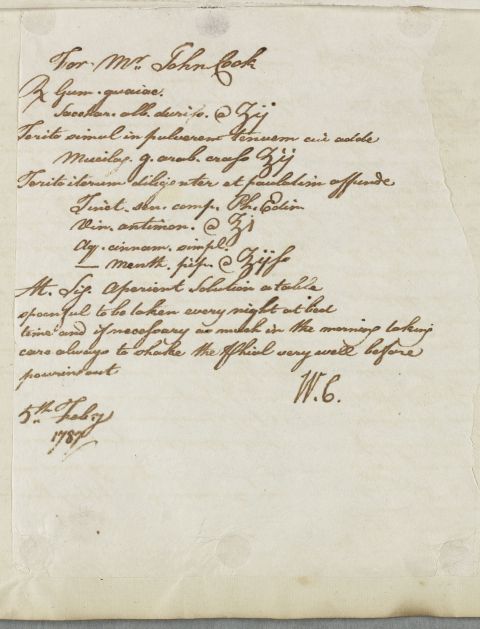 For Mr. John Cook
℞ Gum. guaiac.
Sacchar. alb. duriss. @ ʒij
Terito simul in pulverem tenuem cui adde
Mucilag. g. arab. crass ʒij
Terito iterum diligenter et paulatim affunde
Tinct. sen. comp. Ph. Edin
Vin. antimon. @ ʒj
Aq. cinnam. simpl.
— menth. pip. @ ʒijss
M. Sig. Aperient Solution a table
spoonful to be taken every night at bed
time and if necessary as much in the morning taking
care always to shake the Phial very well before
pouring out
W. C.
5th. Feby
1787